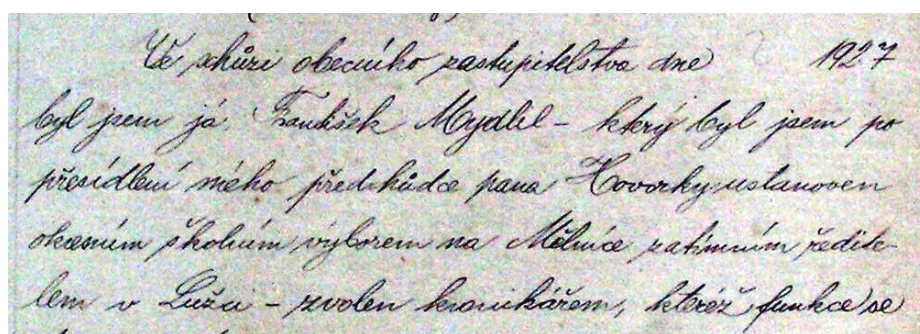 Ve schůzi obecního zastupitelstva dne 1927
byl jsem já František Mydlil - který byl jsem po
přesídlení mého předchůdce pana Hovorky ustanoven
okresním školním výborem na Mělníce zatímním ředite-
lem v Lužci - zvolen kronikářem, kteréž funkce se